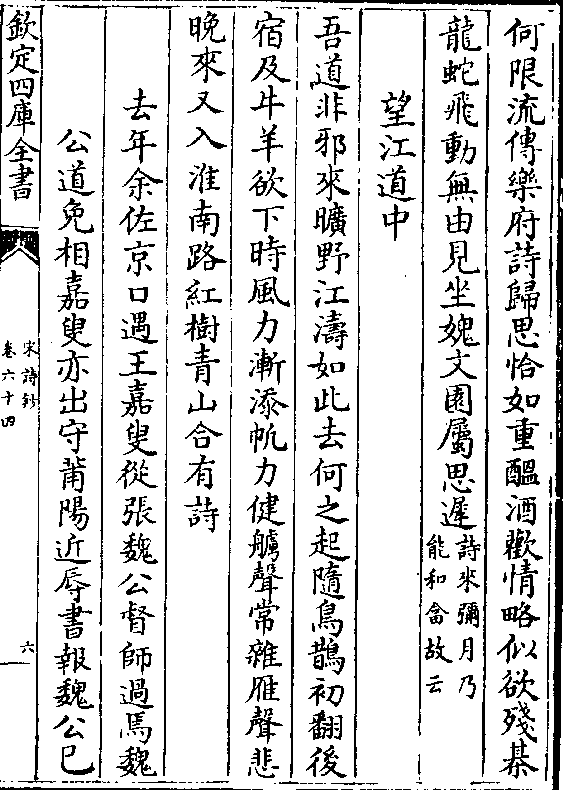 何限流傳樂府詩歸思恰如重醞酒歡情略似欲殘棊
龍蛇飛動無由見坐媿文園屬思遲詩來彌月乃
能和畣故云
望江道中
吾道非邪來曠野江濤如此去何之起隨烏鵲初翻後
宿及牛羊欲下時風力漸添帆力健艣聲常雜雁聲悲
晚來又入淮南路紅樹青山合有詩
去年余佐京口遇王嘉叟從張魏公督師過馬魏
公道免相嘉叟亦出守莆陽近辱書報魏公已
欽定四庫全書
宋詩鈔
卷六十四
六